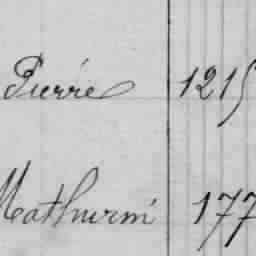 Pierre 1215
Mathurin 177